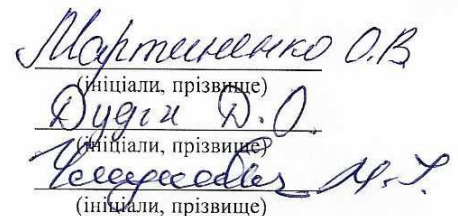 Мартиненко О.В
(ініціали, прізвище)
Дудін Д.О.
(ініціали, прізвище)
М.Т.
(ініціали, прізвище)